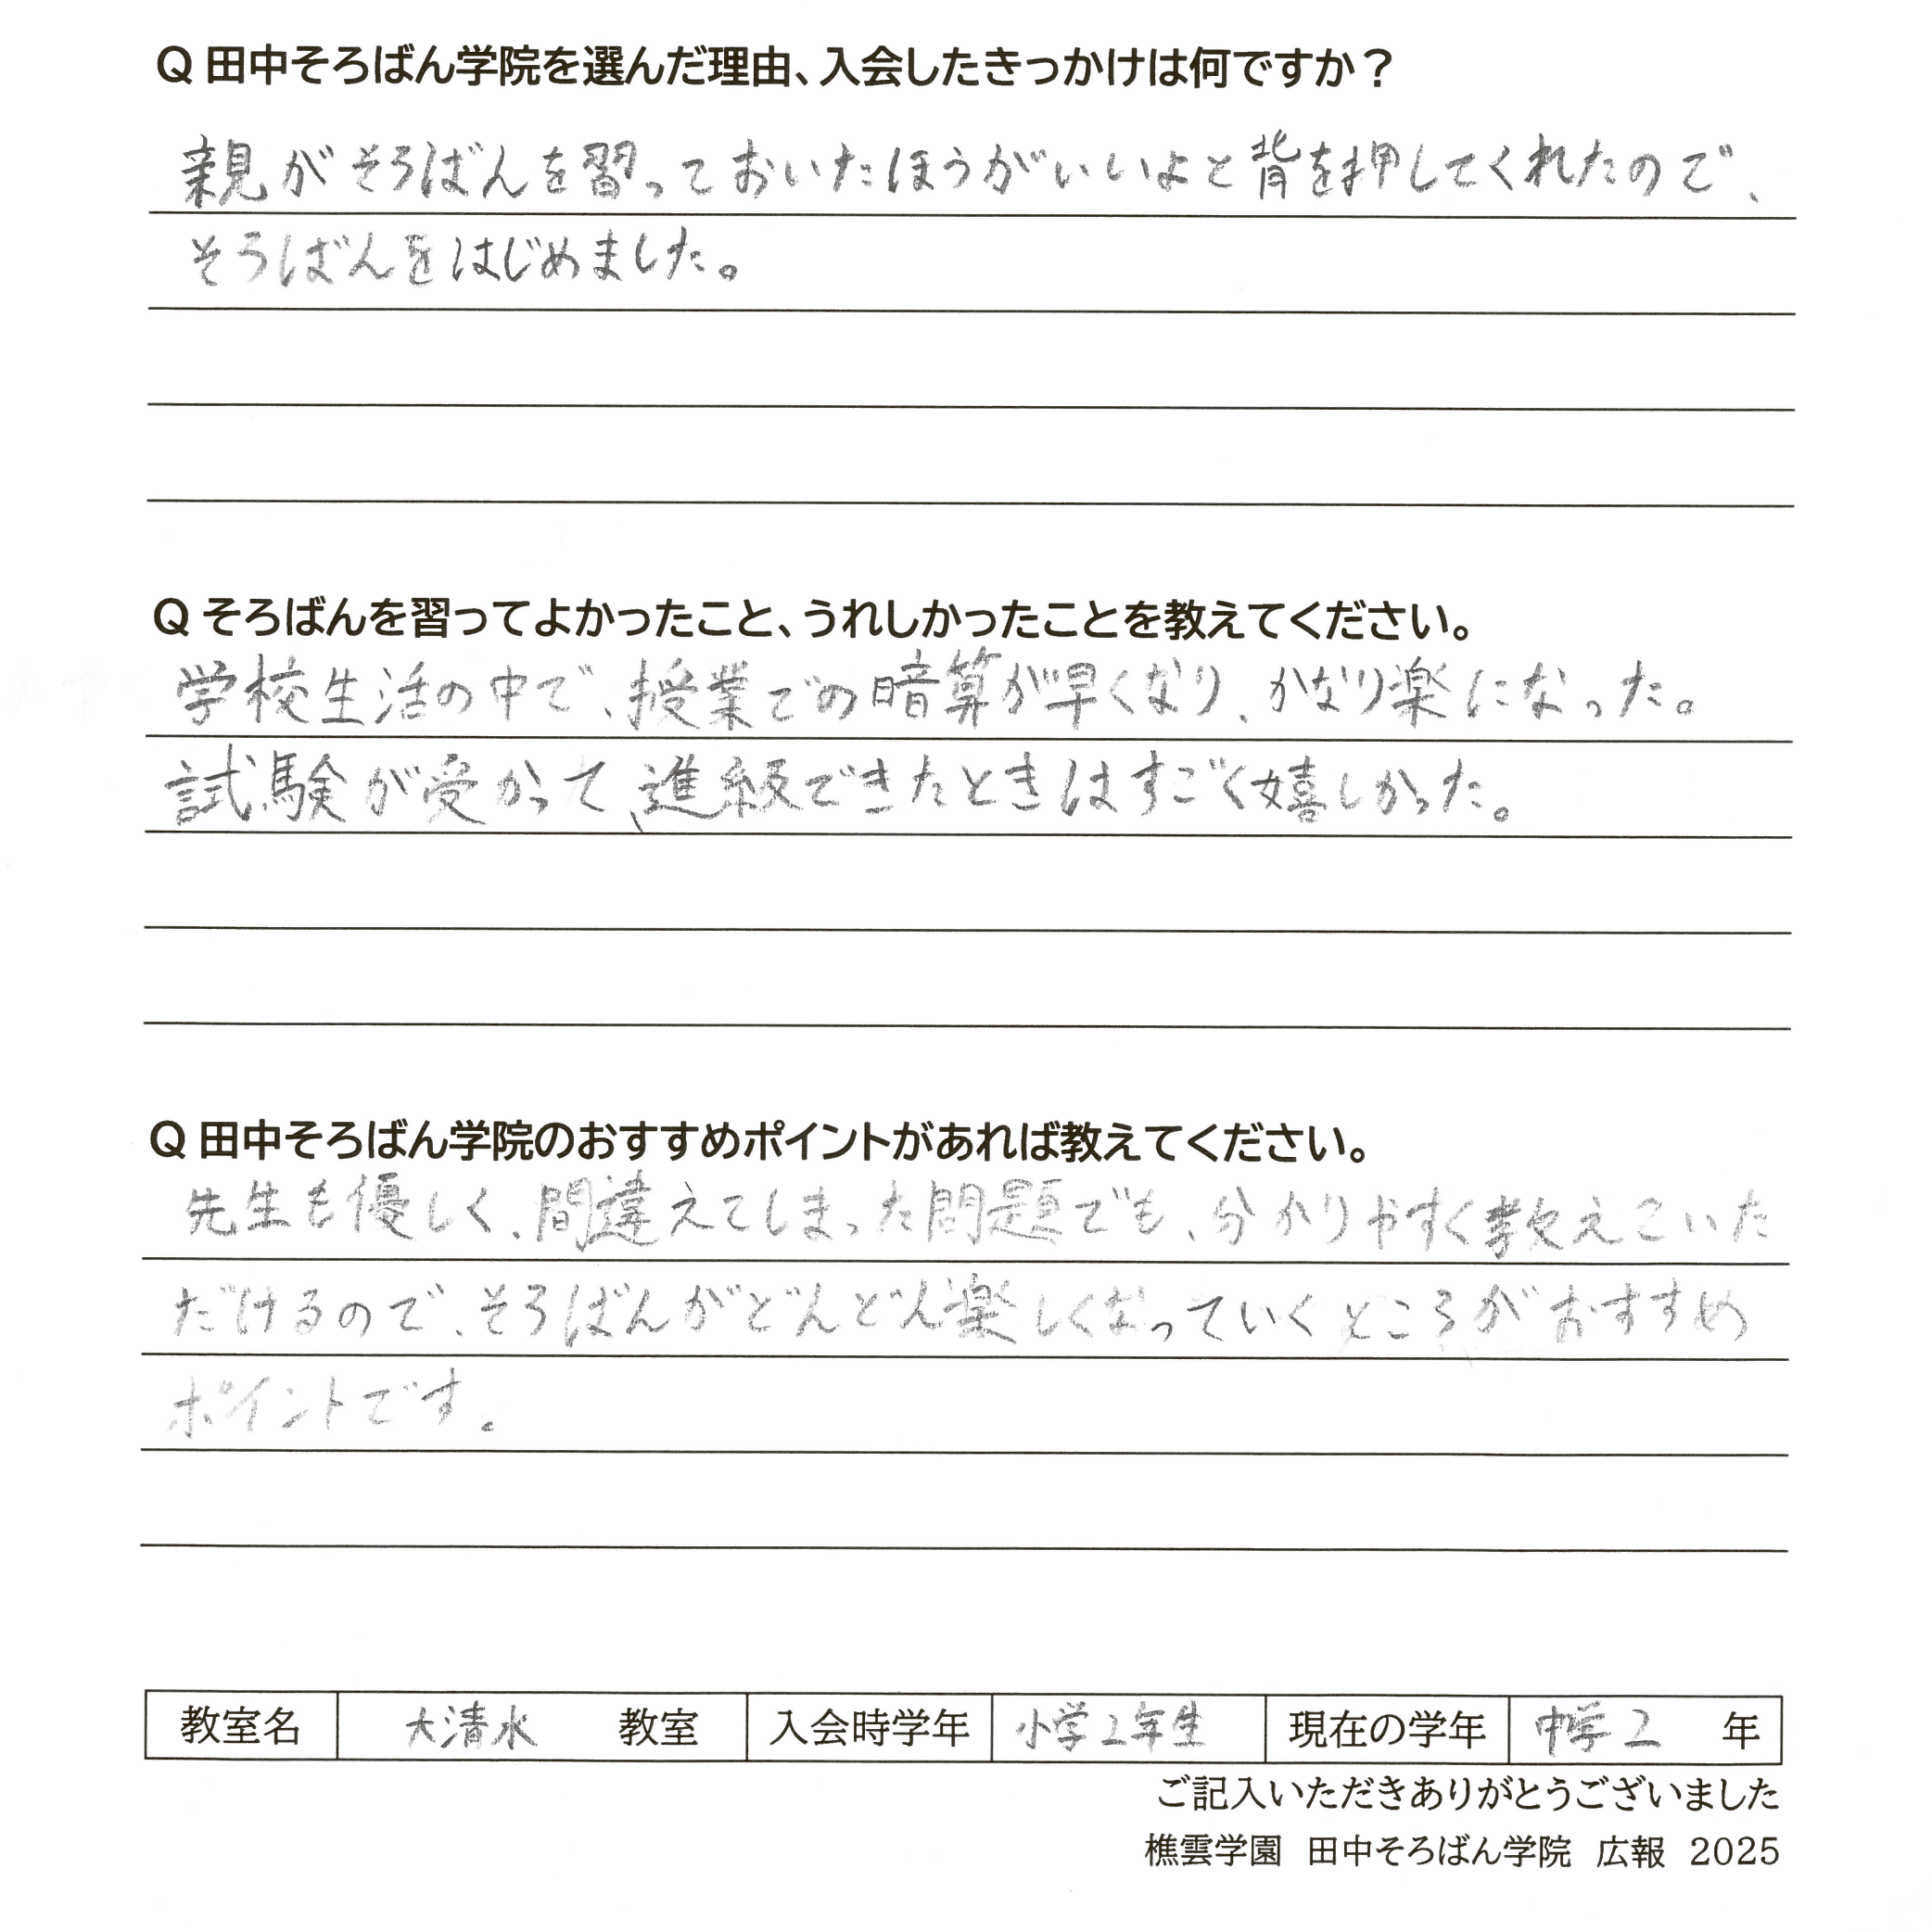 Q 田中そろばん学院を選んだ理由、入会したきっかけは何ですか？
親がそろばんを習っておいたほうがいいよと背を押してくれたので、
そろばんをはじめました。
Q そろばんを習ってよかったこと、うれしかったことを教えてください。
学校生活の中で、授業での暗算が早くなり、かなり楽になった。
試験が受かって、進級できたときはすごく嬉しかった。
Q 田中そろばん学院のおすすめポイントがあれば教えてください。
先生も優しく、間違えてしまった問題でも、分かりやすく教えていた
だけるので、そろばんがどんどん楽しくなっていくところがおすすめ
ポイントです。
教室名 大清水 教室 入会時学年 小学2年生 現在の学年 中学2 年
ご記入いただきありがとうございました
樵雲学園 田中そろばん学院 広報 2025